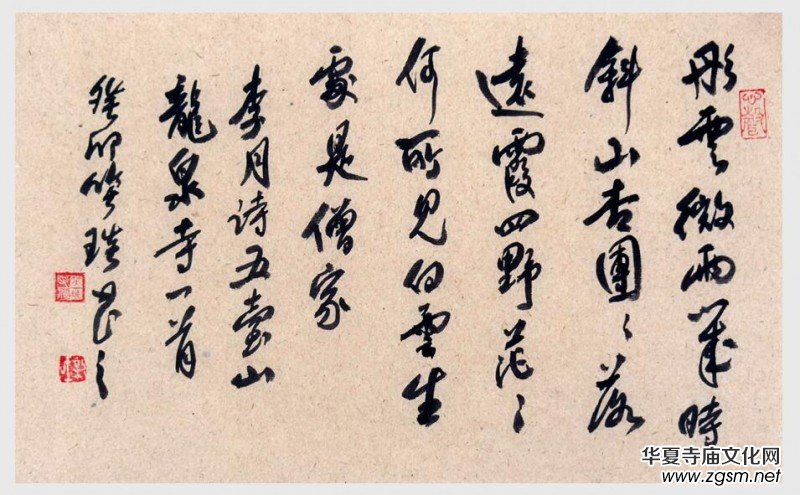 彤雲微雨幾時
斜山杏團〻落
遠霞四野茫〻
何所見白雲生
處是僧家
李月詩五臺山
龍泉寺一首
癸卯 書之
华夏寺庙文化网
www.zgsm.net